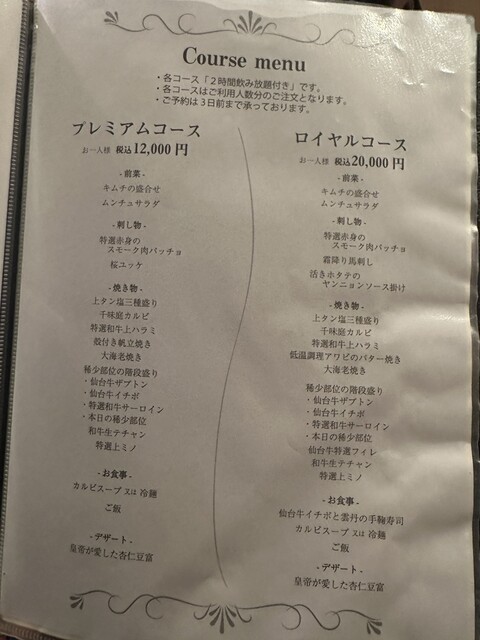 Course menu
・各コース「２時間飲み放題付き」です。
・各コースはご利用人数分のご注文となります。
・ご予約は３日前まで承っております。
プレミアムコース
お一人様 税込12,000円
- 前菜 -
キムチの盛合せ
ムンチュサラダ
- 刺し物 -
特選赤身の
スモーク肉パッチョ
桜ユッケ
- 焼き物 -
上タン塩三種盛り
千味庭カルビ
特選和牛上ハラミ
殻付き帆立焼き
大海老焼き
稀少部位の階段盛り
・仙台牛ザブトン
・仙台牛イチボ
・特選和牛サーロイン
・本日の稀少部位
和牛生テチャン
特選上ミノ
- お食事 -
カルビスープ 又は 冷麺
ご飯
- デザート -
皇帝が愛した杏仁豆富
ロイヤルコース
お一人様 税込20,000円
- 前菜 -
キムチの盛合せ
ムンチュサラダ
- 刺し物 -
特選赤身の
スモーク肉パッチョ
霜降り馬刺し
活きホタテの
ヤンニョンソース掛け
- 焼き物 -
上タン塩三種盛り
千味庭カルビ
特選和牛上ハラミ
低温調理アワビのバター焼き
大海老焼き
稀少部位の階段盛り
・仙台牛ザブトン
・仙台牛イチボ
・特選和牛サーロイン
・本日の稀少部位
仙台牛特選フィレ
和牛生テチャン
特選上ミノ
- お食事 -
仙台牛イチボと雲丹の手鞠寿司
カルビスープ 又は 冷麺
ご飯
- デザート -
皇帝が愛した杏仁豆富